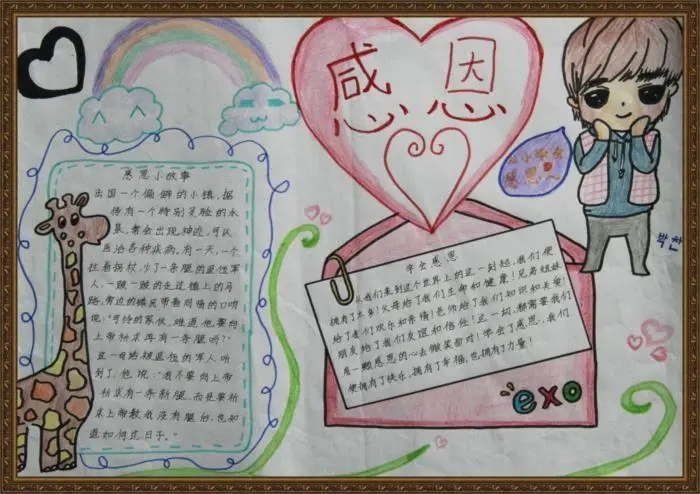 感恩
感恩小故事
法国一个偏僻的小镇，据
传有一个特别灵验的水
泉，常会出现神迹，可以
医治各种疾病。有一天，一个
拄着拐杖，少了一条腿的退伍军
人，一跛一跛的走过镇上的马
路，旁边的镇民带着同情的口吻
说："可怜的家伙，难道他要向
上帝祈求再有一条腿吗？"
这一句话被退伍的军人听
到了，他说："我不要向上帝
祈求有一条新腿，而是要祈
求上帝教我没有腿后，也知
道如何过日子。"
学会感恩
从我们来到这个世界上的这一刻起，我们便
拥有了太多！父母给了我们生命和健康！兄弟姐妹
给了我们欢乐和亲情！老师给了我们知识和友爱！
朋友给了我们友谊和信任！这一切，都需要我们
用一颗感恩的心去微笑面对！学会了感恩，我们
便拥有了快乐，拥有了幸福，也拥有了力量！
exo
从小学会
感恩～
朴灿